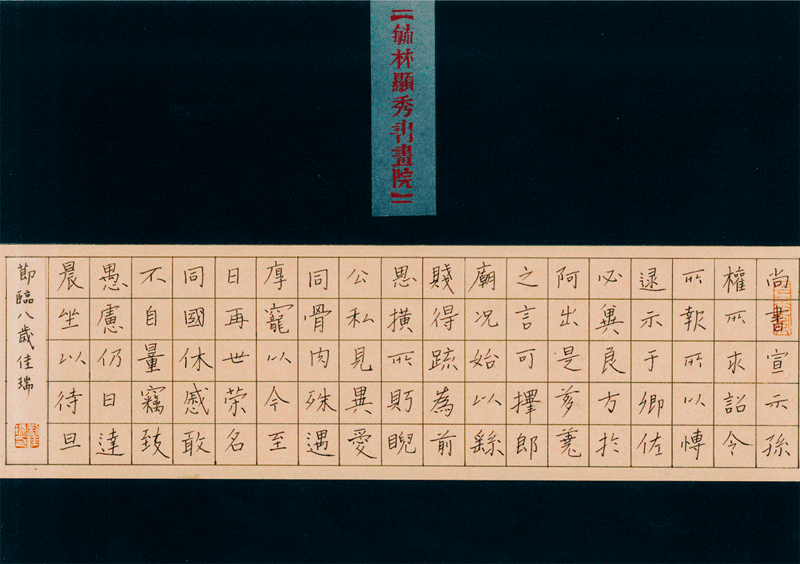 【毓林顯秀書畫院】
尚書宣示孫
權所求詔令
所報所以博
逮示于卿佐
必冀良方於
阿出是芻蕘
之言可擇郎
廟況始以繇
賤得疏為前
恩橫所眄睨
公私見異愛
同骨肉殊遇
厚寵以今至
日再世榮名
同國休慼敢
不自量竊致
愚慮仍日達
晨坐以待旦
節臨八歲佳瑞